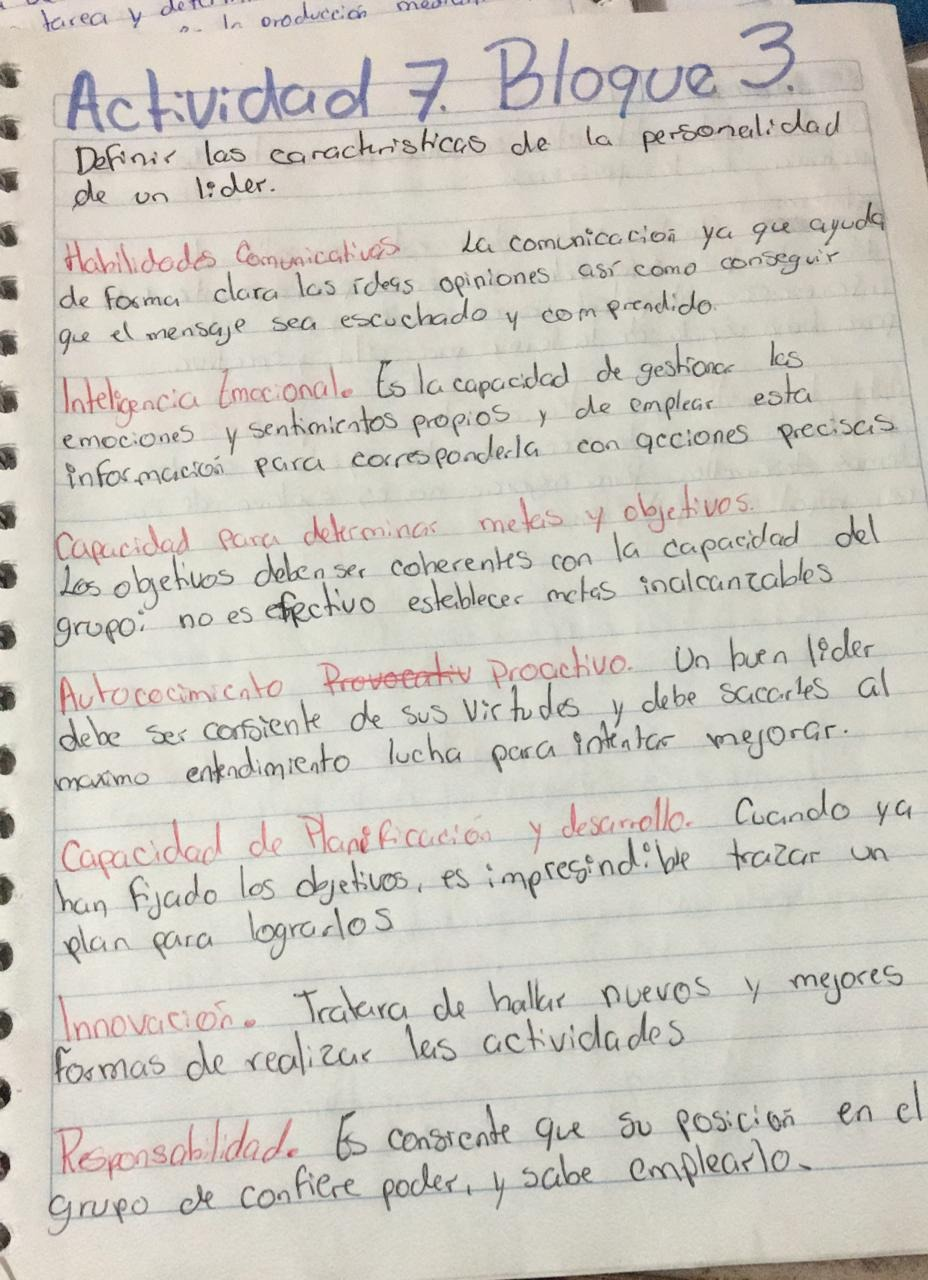 tarea y
la producción
Actividad 7. Bloque 3.
Definir las carachristicas de la personalidad
de un lider.
Habilidades Comunicativas La comunicación ya que ayuda
de forma clara las ideas opiniones así como conseguir
que el mensaje sea escuchado y comprendido.
Inteligencia Emocional. Es la capacidad de gestionar las
emociones y sentimientos propios y de emplear esta
información para corresponderla con acciones precisas
Capacidad para determinar metas y objetivos.
Los objetivos deben ser coherentes con la capacidad del
grupo: no es efectivo establecer metas inalcanzables
Autococimiento Provocativ Proactivo. Un buen lider
debe ser consiente de sus virtudes y debe sacarles al
maximo entendimiento lucha para intentar mejorar.
Capacidad de Planificación y desarrollo. Cuando ya
han fijado los objetivos, es impresindible trazar un
plan para lograrlos
Innovación. Tratara de hallar nuevos y mejores
formas de realizar las actividades
Responsabilidad. Es consiente que su posición en el
grupo de confiere poder, y sabe emplearlo.